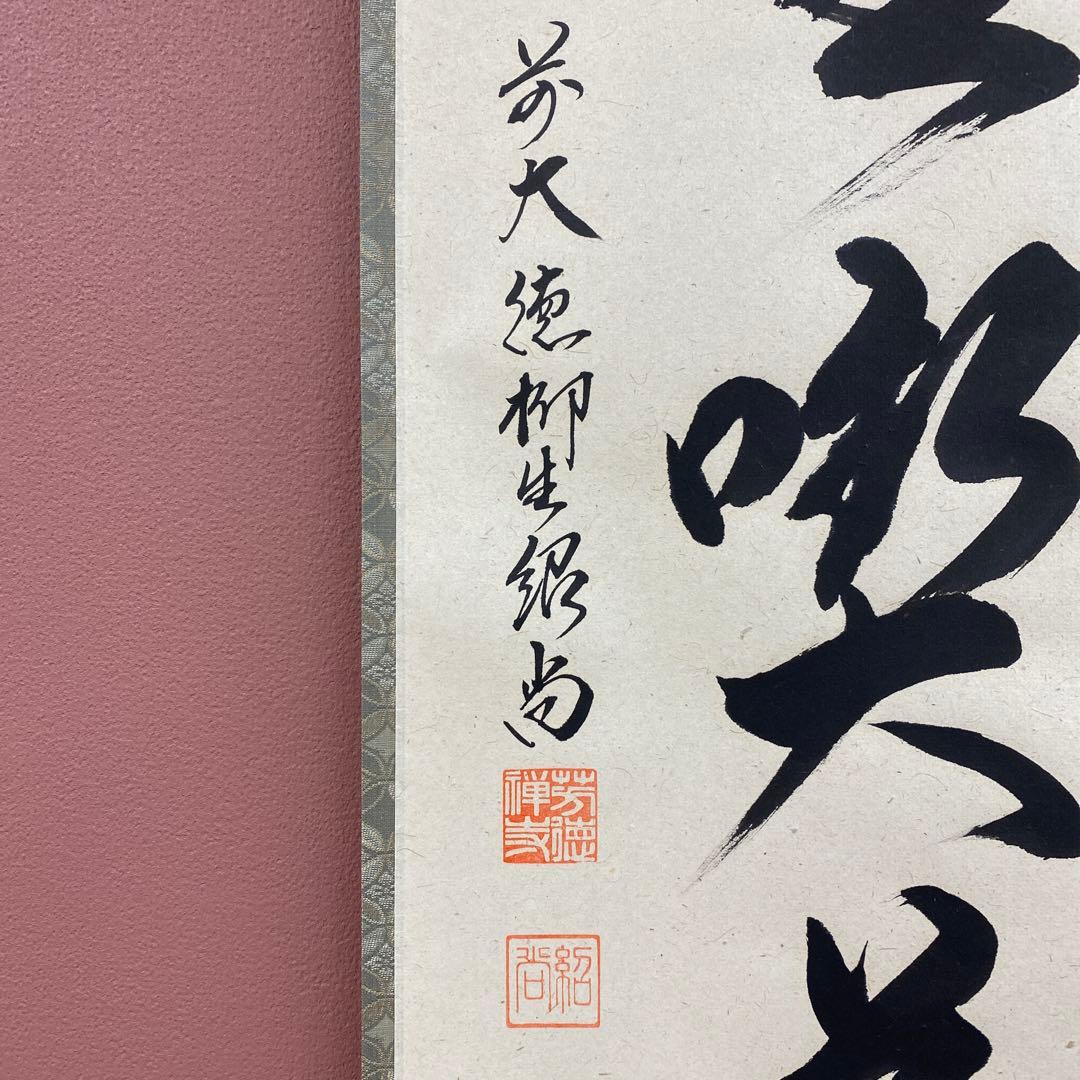 喫
前大徳柳生紹尚
芳徳禅寺
紹尚